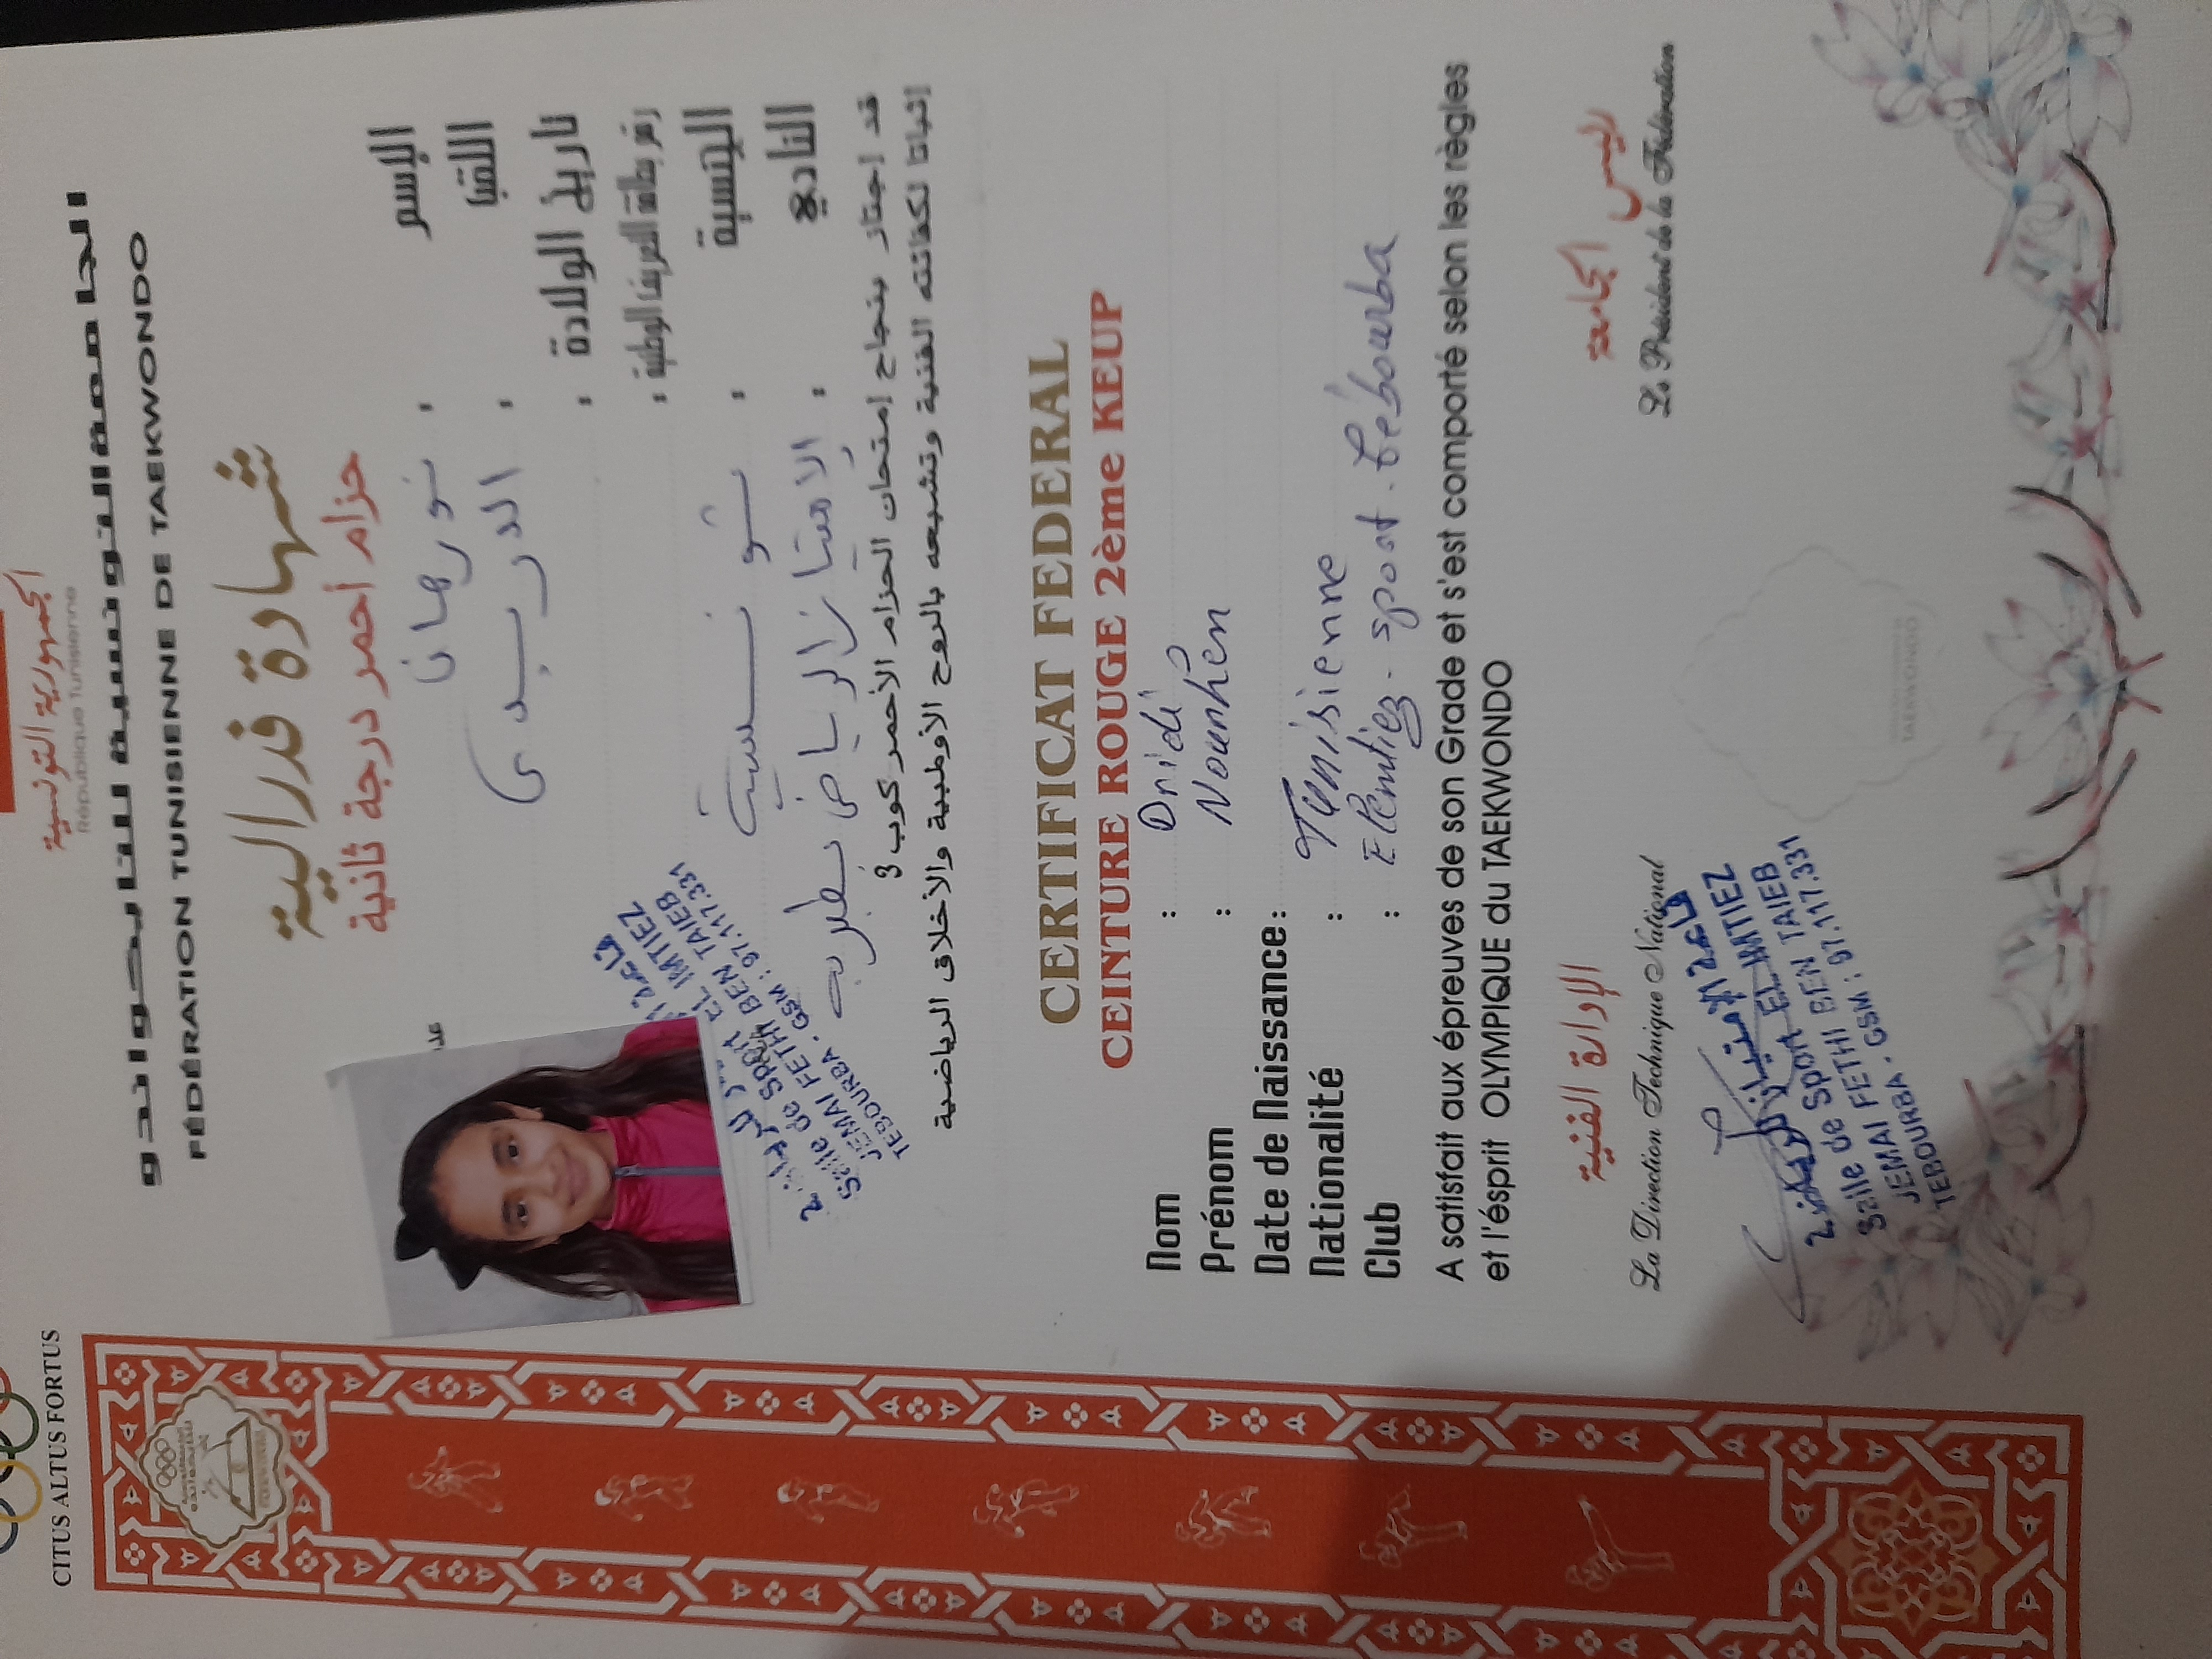 CITUS ALTUS FORTUS
الجمهورية التونسية
République Tunisienne
الجامعة التونسية للتايكواندو
FÉDÉRATION TUNISIENNE DE TAEKWONDO
شهادة فدرالية
حزام أحمر درجة ثانية
عد
الإسم : نورهان
اللقب : الدريدي
تاريخ الولادة :
رقم بطاقة التعريف الوطنية :
الجنسية : تونسية
النادي : الامتياز الرياضي بطبربة
قد إجتاز بنجاح إمتحان الحزام الأحمر كوب 3
إثباتا لكفائته الفنية وتشبعه بالروح الأولمبية والأخلاق الرياضية
Salle de Sport EL IMTIEZ
JEMAI FETHI BEN TAIEB
TEBOURBA . GSM : 97.117.331
CERTIFICAT FEDERAL
CEINTURE ROUGE 2ème KEUP
Nom : Dridi
Prénom : Nourhen
Date de Naissance :
Nationalité : Tunisienne
Club : Elemtiez-sport-tébourba
A satisfait aux épreuves de son Grade et s'est comporté selon les règles
et l'ésprit OLYMPIQUE du TAEKWONDO
الإدارة الفنية
La Direction Technique National
رئيس الجامعة
Le Président de la Fédération
قاعة الإمتياز للرياضة
Salle de Sport EL IMTIEZ
JEMAI FETHI BEN TAIEB
TEBOURBA . GSM : 97.117.331
TAEKWONDO